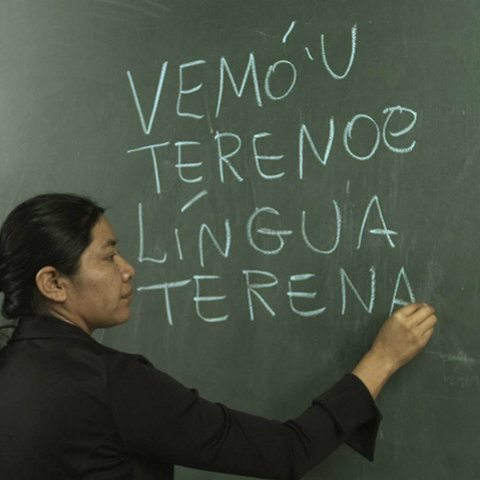 VEMÓ'U
TERENOE
LÍNGUA
TERENA